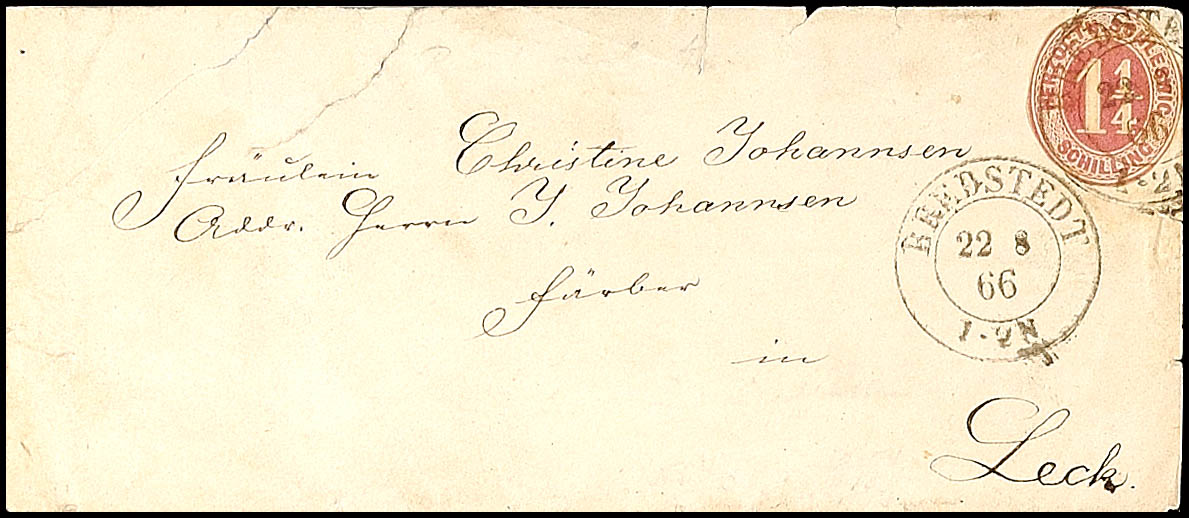 HERZOGTH. SCHLESWIG
1 1/4
SCHILLING
Fräulein Christine Johannsen
Addr. Herrn J. Johannsen
Färber
in
Leck.
BREDSTEDT
22 8
66
1-2N